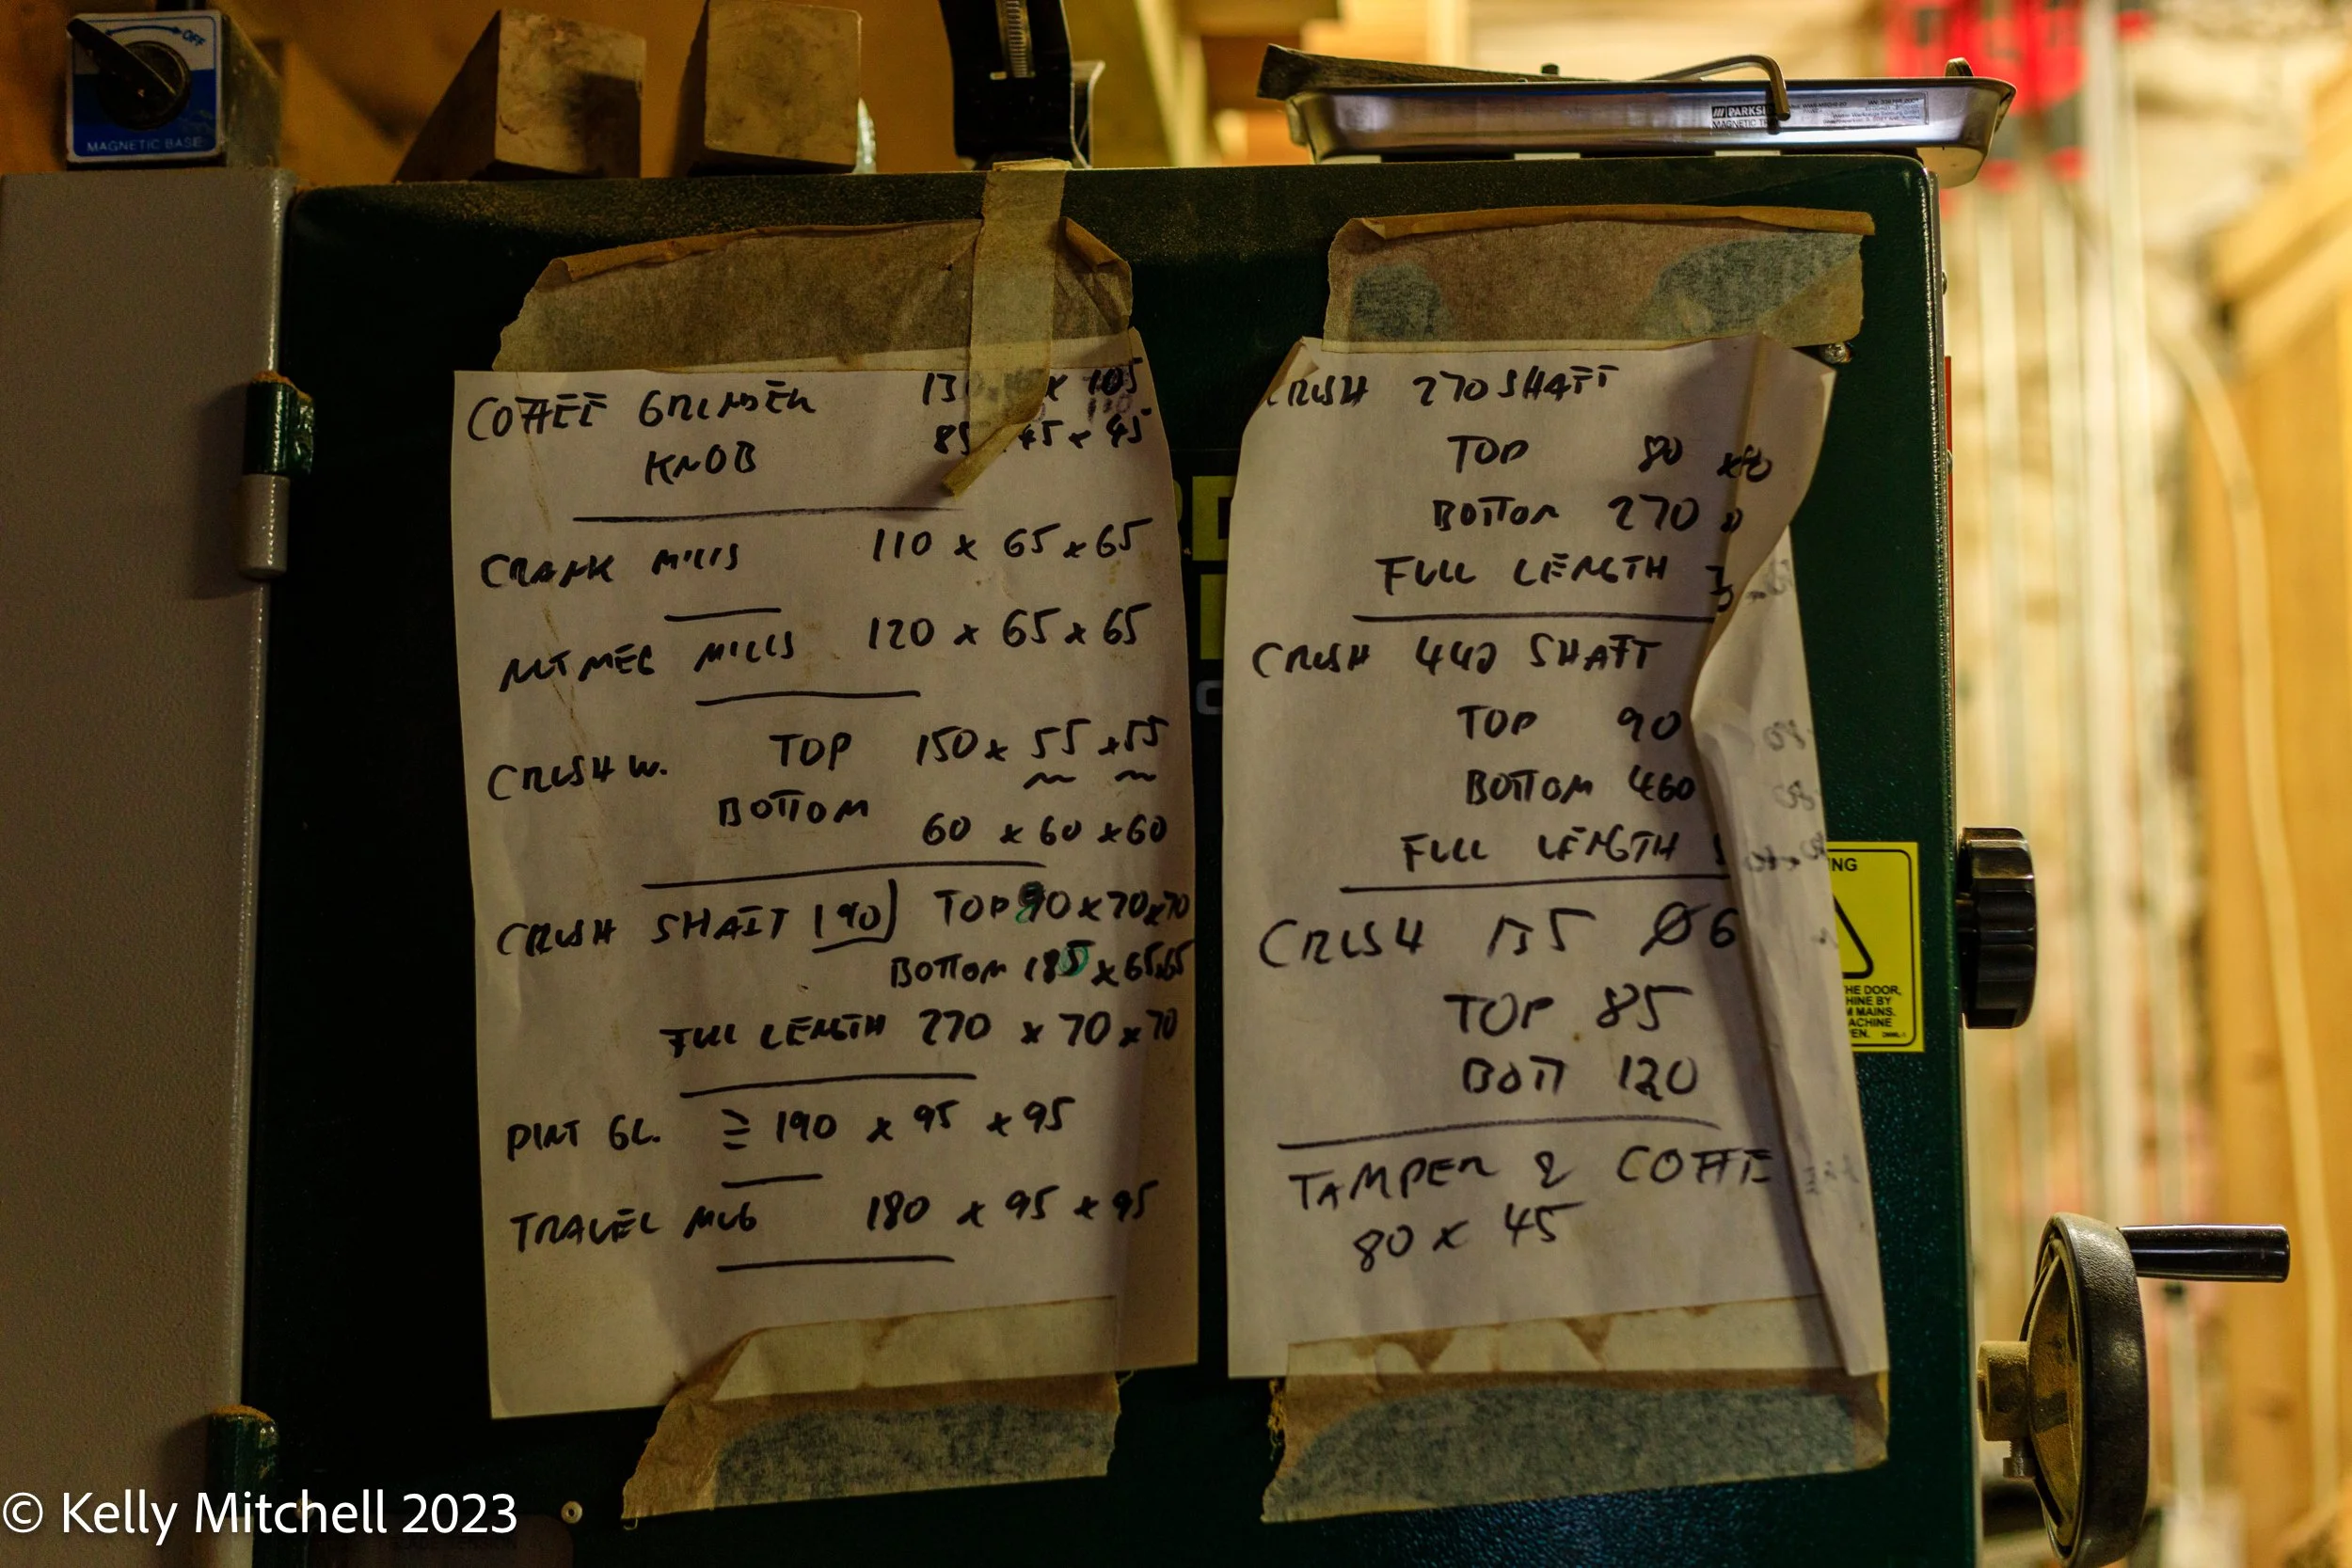 OFF
MAGNETIC BASE
PARKSI
MAGNETIC TR
COFFEE GRINDER x 105
KNOB 85 45 x 45
CRANK MILLS 110 x 65 x 65
NUTMEG MILLS 120 x 65 x 65
CRUSH W. TOP 150 x 55 x 55
BOTTOM 60 x 60 x 60
CRUSH SHAFT (190) TOP 90 x 70 x 70
BOTTOM 185 x 65 x 65
FULL LENGTH 270 x 70 x 70
PINT GL. ≥ 190 x 95 x 95
TRAVEL MUG 180 x 95 x 95
CRUSH 270 SHAFT
TOP 80
BOTTOM 270
FULL LENGTH
CRUSH 440 SHAFT
TOP 90
BOTTOM 460
FULL LENGTH
CRUSH Ø6
TOP 85
BOTT 120
TAMPER & COFFE
80 x 45
NG
HE DOOR,
HINE BY
M MAINS.
ACHINE
EN.
© Kelly Mitchell 2023